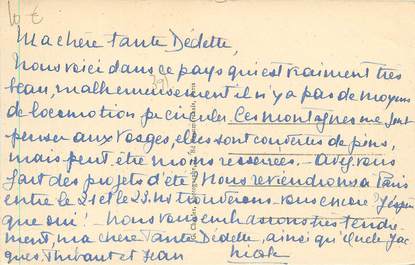 10 €
Ma chère tante Dédette,
Nous voici dans ce pays qui est vraiment très
beau, malheureusement il n'y a pas de moyens
de locomotion pr circuler Ces montagnes me font
penser aux Vosges, elles sont couvertes de pins,
mais peut être moins resserrées. Avez vous
fait des projets d'été? Nous reviendrons à Paris
entre le 21 et le 23. Nous trouverons-vous encore? J'espère
que oui! Nous vous embrassons très tendre-
ment, ma chère Tante Dédette, ainsi qu'Uncle Jac-
ques Thibaut et Jean
Nicole